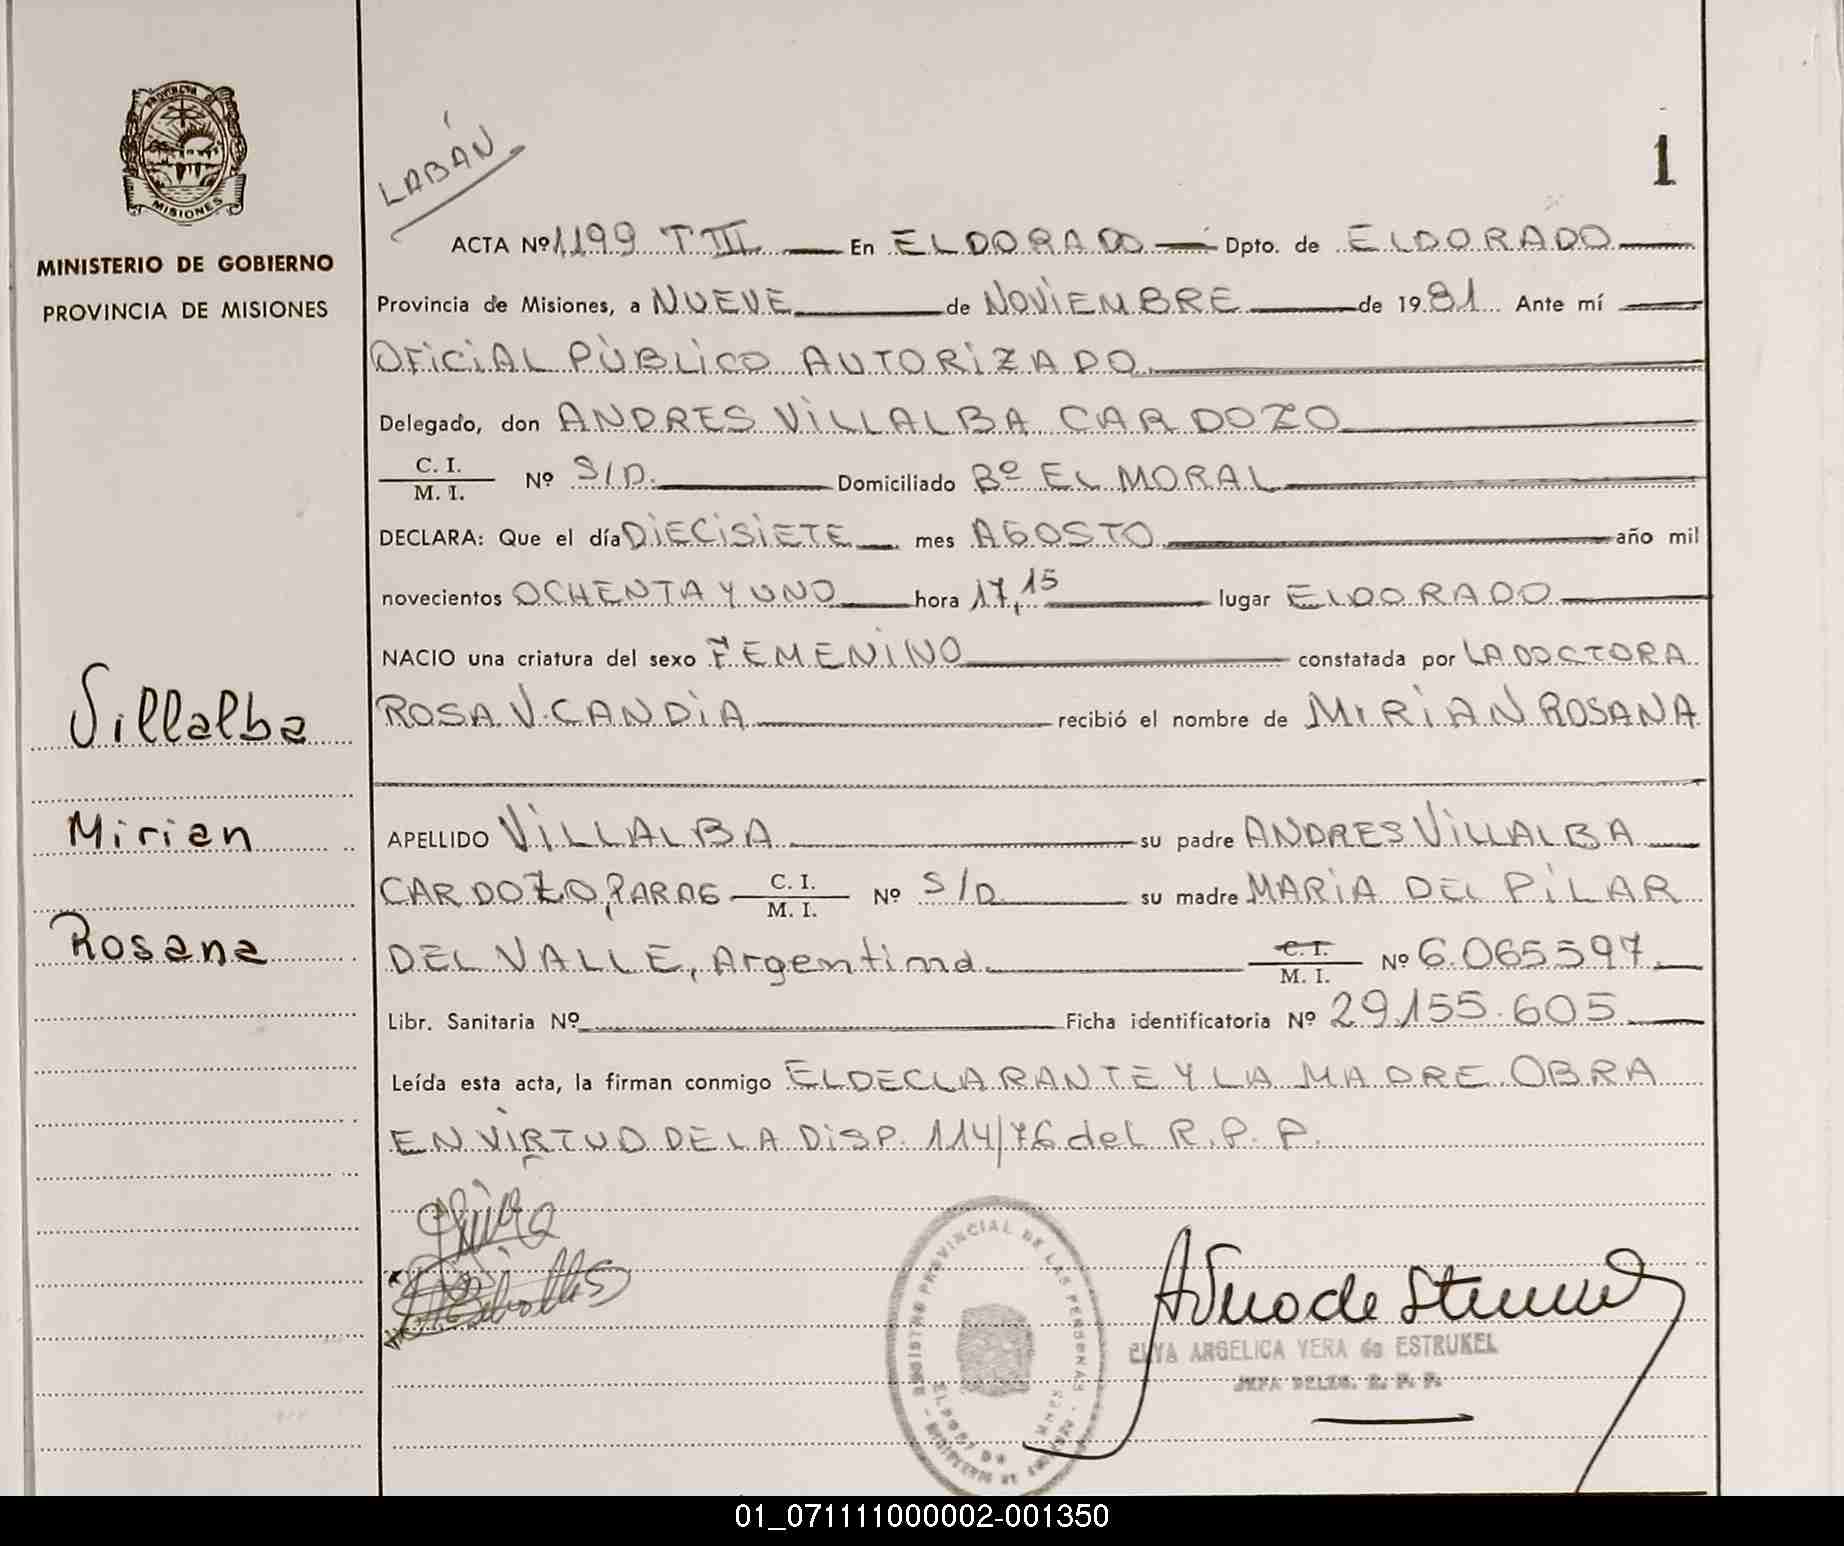 PROVINCIA
MISIONES
MINISTERIO DE GOBIERNO
PROVINCIA DE MISIONES
Villalba
Mirian
Rosana
LABÁN
1
ACTA Nº 1199 T III En ELDORADO Dpto. de ELDORADO
Provincia de Misiones, a NUEVE de NOVIEMBRE de 1981 Ante mí
OFICIAL PÙBLICO AUTORIZADO
Delegado, don ANDRES VILLALBA CARDOZO
C. I.
M. I. Nº S/D. Domiciliado Bº EL MORAL
DECLARA: Que el día DIECISIETE mes AGOSTO año mil
novecientos OCHENTA Y UNO hora 17,15 lugar ELDORADO
NACIO una criatura del sexo FEMENINO constatada por LA DOCTORA
ROSA V. CANDIA recibió el nombre de MIRIAN ROSANA
APELLIDO VILLALBA su padre ANDRES VILLALBA
CARDOZO, PARAG C. I. M. I. Nº S/D su madre MARIA DEL PILAR
DEL VALLE, Argentina C. I. M. I. Nº 6.065597
Libr. Sanitaria Nº Ficha identificatoria Nº 29.155.605
Leída esta acta, la firman conmigo EL DECLARANTE Y LA MADRE OBRA
EN VIRTUD DE LA DISP. 114/76 del R. P. P.
REGISTRO PROVINCIAL DE LAS PERSONAS
ELDORADO
ELVA ANGELICA VERA de ESTRUKEL
JEFA DELEG. R. P. P.
01_071111000002-001350